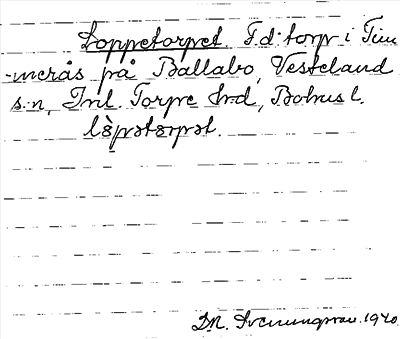 Loppetorpet. F.d. torp i Tim-
merås på Ballabo, Västerland
s:n, Inl. Torpe hrd, Bohusl.
lòpətɔrpət.
DN. Svenungsson. 1940